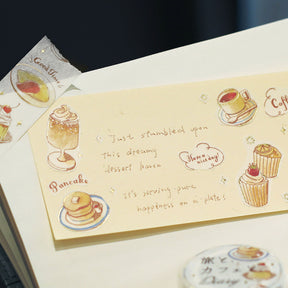 Good Time
Coff
Just stumbled upon
this dreamy
dessert haven
Have a nice day!
Pancake
it's serving pure
happiness on a plate!
旅と
カフェ
Diary